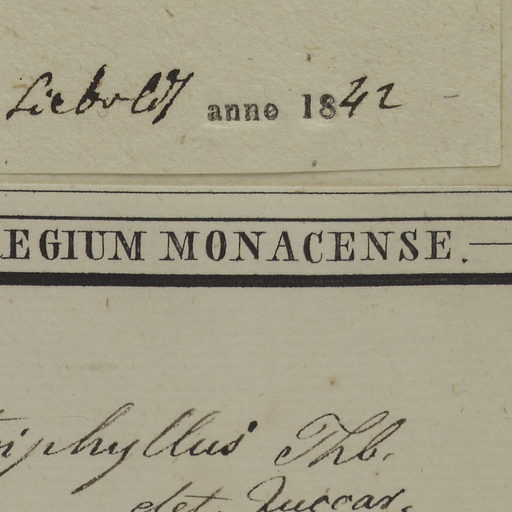 Siebold anne 1842
EGIUM MONACENSE.
iphyllus Thb.
det. Zuccar.